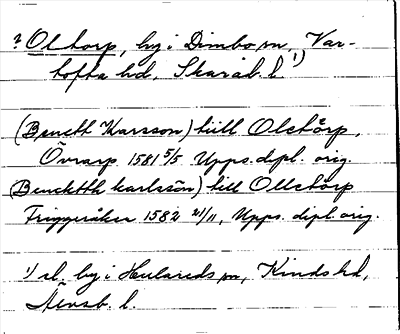 ? Oltorp, by i Dimbo sn, Var-
tofta hd, Skarab. l. 1)
(Benctt Karsson) till Olctörp,
Övrarp 1581 5/5 Upps. dipl. orig.
(Bencktth karlssön) till Ollctörp
Friggeråker 1582 21/11, Upps. dipl orig.
1) el. by i Hulareds sn, Kinds hd,
Älvsb. l.